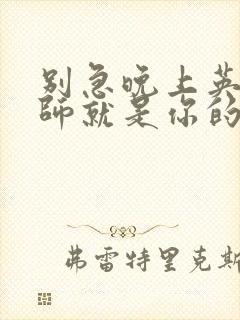 别急晚上英
师就是你的
弗雷特里克斯